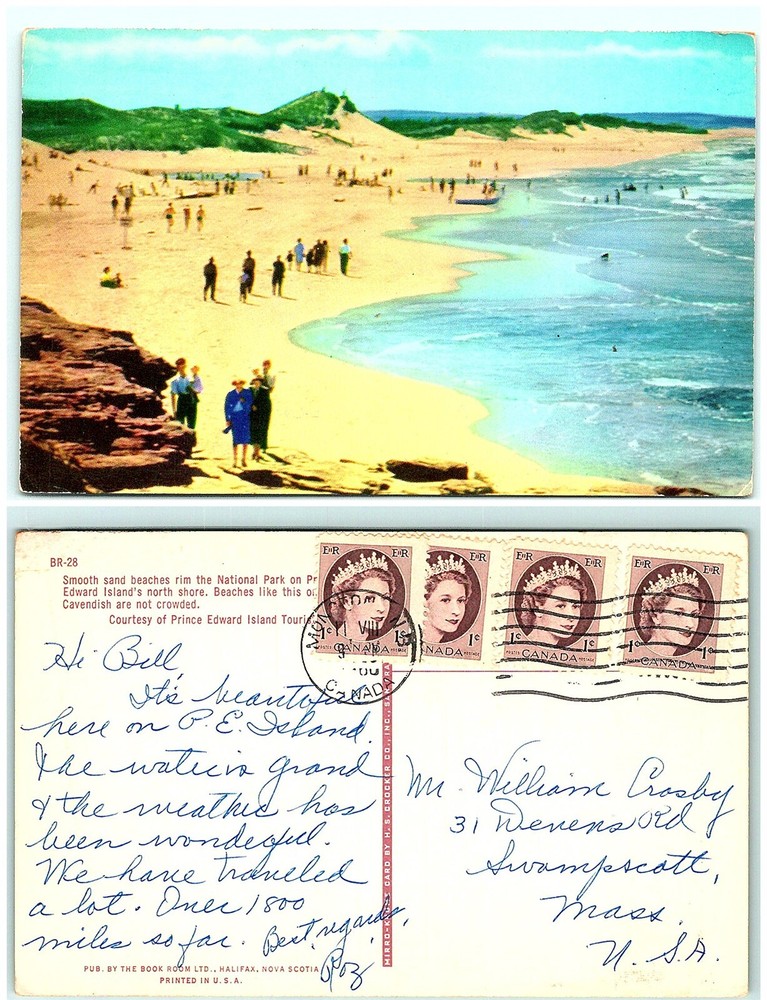 BR-28
Smooth sand beaches rim the National Park on Pr
Edward Island's north shore. Beaches like this on
Cavendish are not crowded.
Courtesy of Prince Edward Island Touris
E II R E II R
E II R
E II R E II R
E II R E II R
1¢ 1¢
1¢
1¢ 1¢
1¢ 1¢
POSTES CANADA POSTAGE
CANADA POSTAGE
POSTES CANADA POSTAGE
CANADA
MONCTON N.B.
11 VIII
CANADA
Hi Bill
It's beautiful
here on P. E. Island.
The water is grand
& the weather has
been wonderful.
We have traveled
a lot. Over 1800
miles so far. Best regards,
Roz
Mr. William Crosby
31 Devens Rd
Swampscott,
Mass.
U. S.A.
MIRRO-KROME CARD BY H. S. CROCKER CO., INC., SAN FRA
PUB. BY THE BOOK ROOM LTD., HALIFAX, NOVA SCOTIA
PRINTED IN U.S.A.